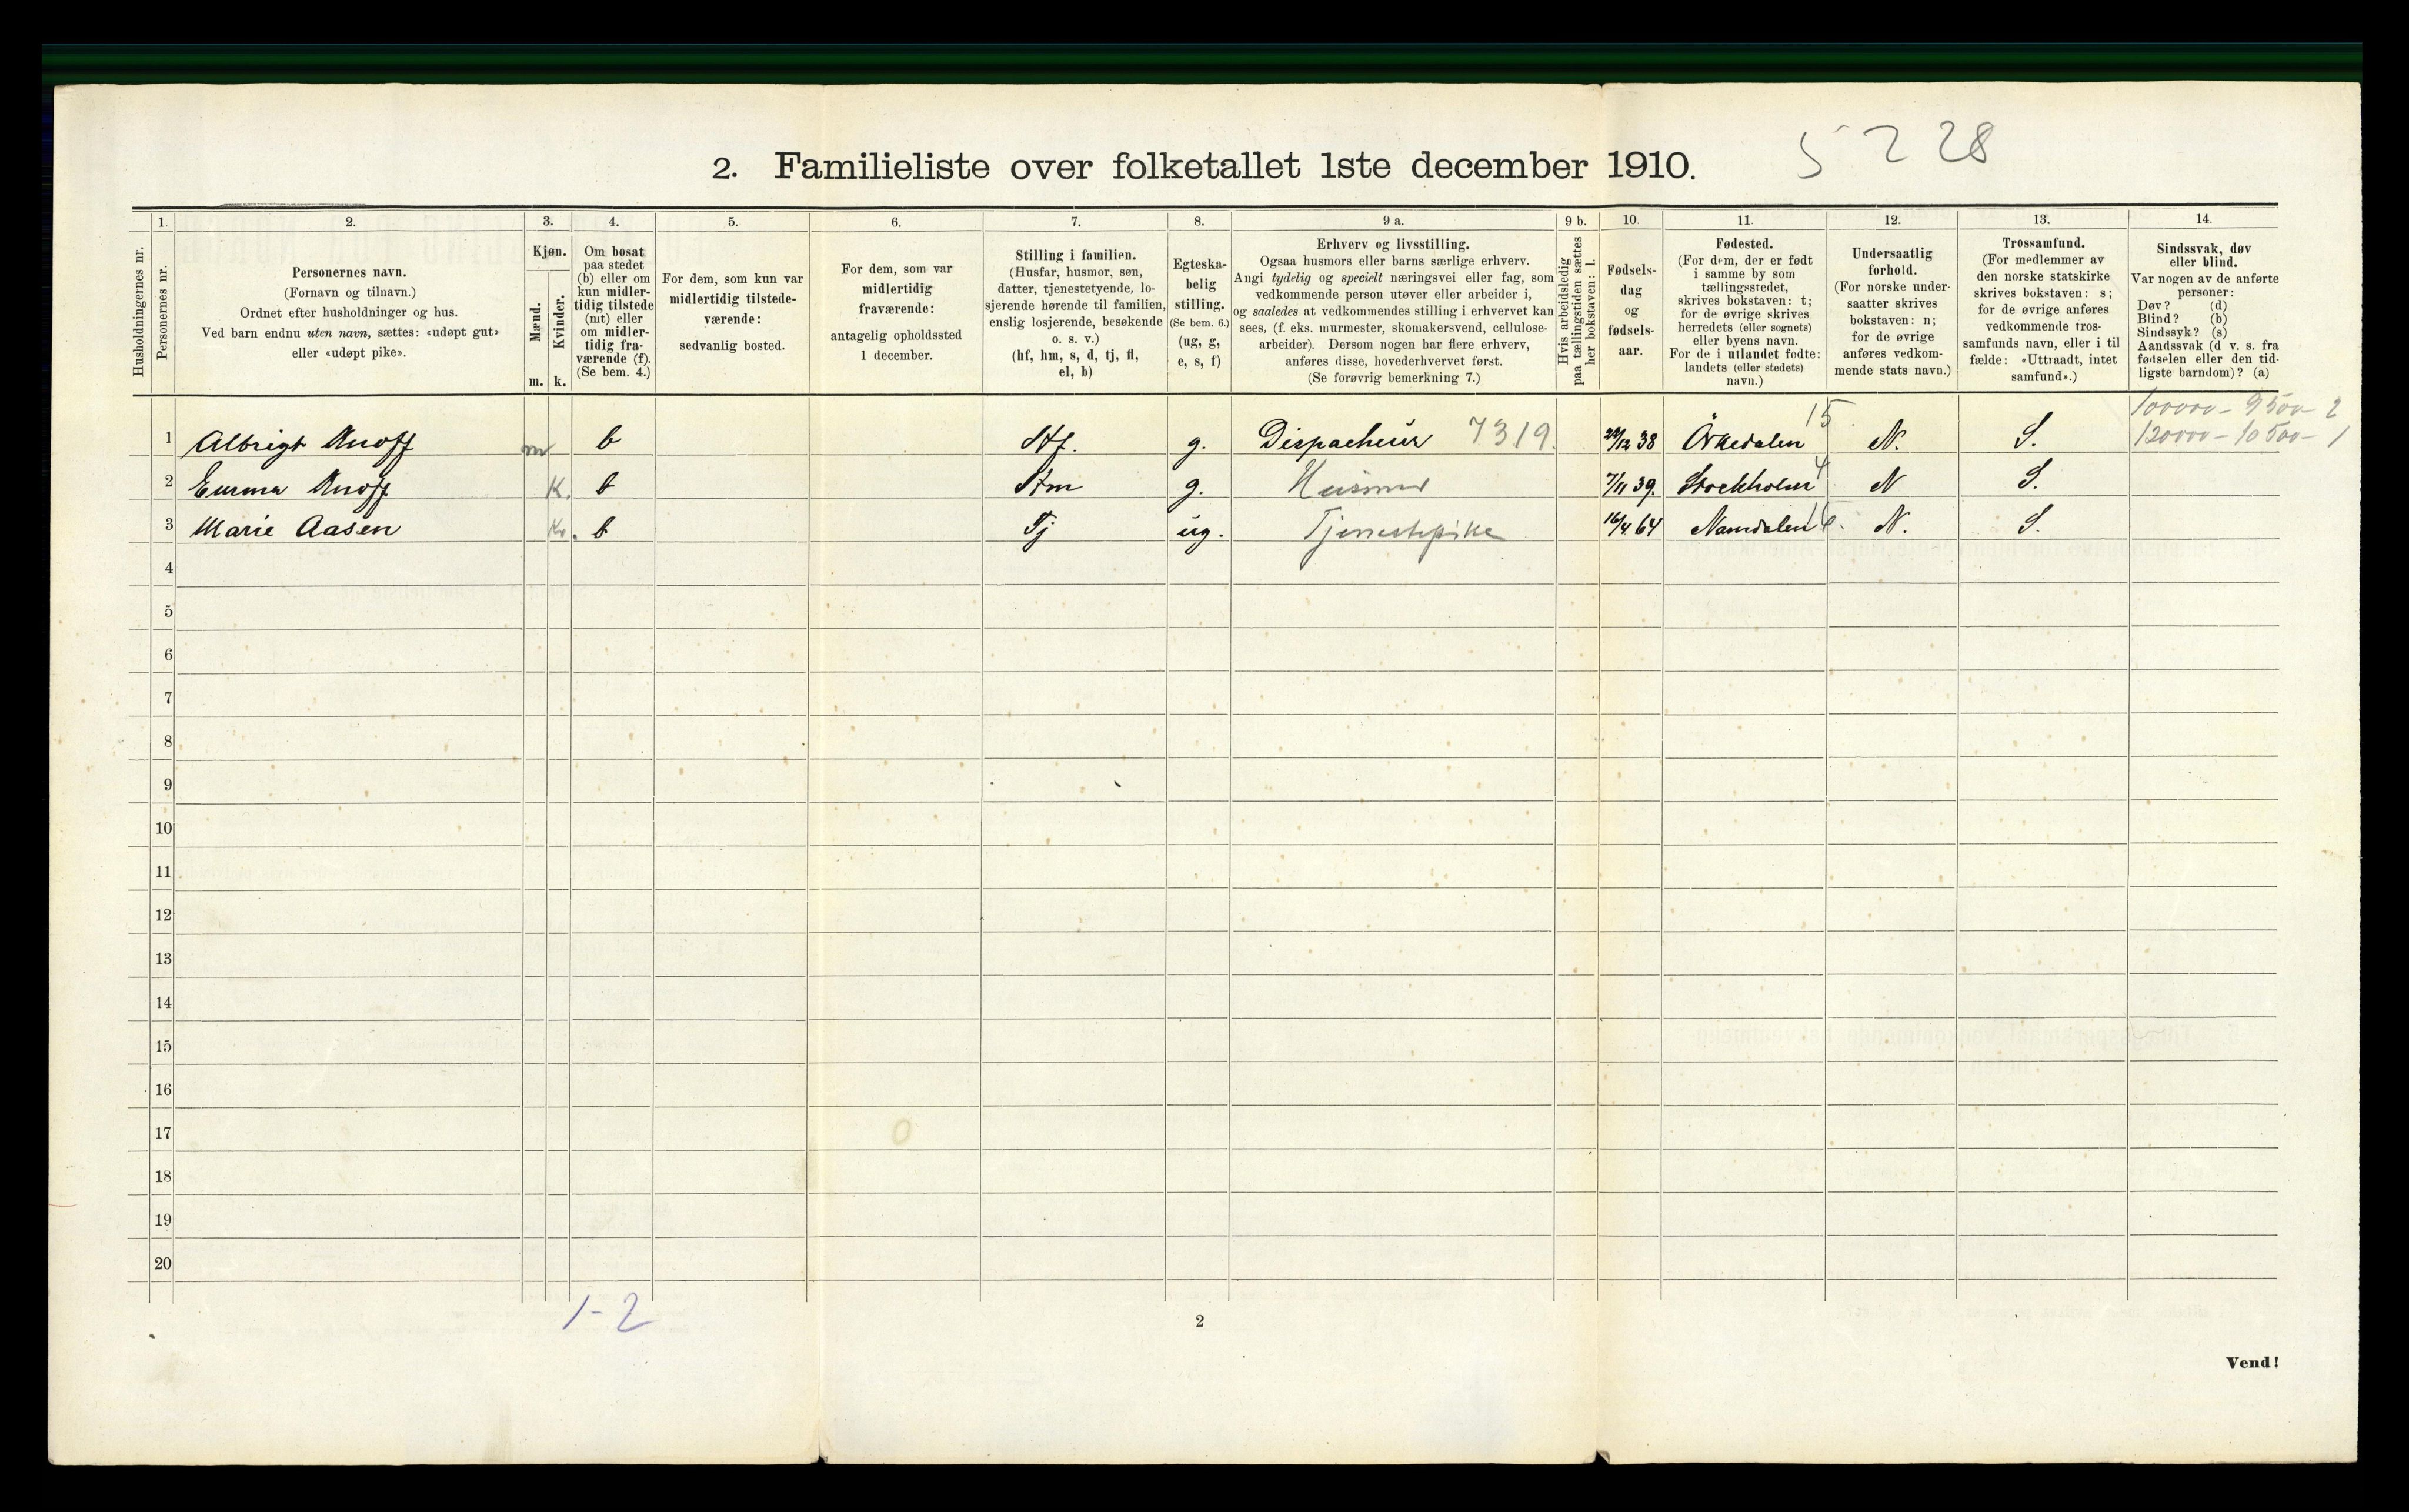 2. Familieliste over folketallet 1ste december 1910.
5228
Husholdningernes nr.
1.
Personernes nr.
2.
Personernes navn.
(Fornavn og tilnavn.)
Ordnet efter husholdninger og hus.
Ved barn endnu uten navn, sættes: «udøpt gut»
eller «udøpt pike».
3.
Kjøn.
Mænd.
Kvinder.
m. k.
4.
Om bosat
paa stedet
(b) eller om
kun midler-
tidig tilstede
(mt) eller
om midler-
tidig fra-
værende (f).
(Se bem. 4.)
5.
For dem, som kun var
midlertidig tilstede-
værende:
sedvanlig bosted.
6.
For dem, som var
midlertidig
fraværende:
antagelig opholdssted
1 december.
7.
Stilling i familien.
(Husfar, husmor, søn,
datter, tjenestetyende, lo-
sjerende hørende til familien,
enslig losjerende, besøkende
o. s. v.)
(hf, hm, s, d, tj, fl,
el, b)
8.
Egteska-
belig
stilling.
(Se bem. 6.)
(ug, g,
e, s, f)
9 a.
Erhverv og livsstilling.
Ogsaa husmors eller barns særlige erhverv.
Angi tydelig og specielt næringsvei eller fag, som
vedkommende person utøver eller arbeider i,
og saaledes at vedkommendes stilling i erhvervet kan
sees, (f. eks. murmester, skomakersvend, cellulose-
arbeider). Dersom nogen har flere erhverv,
anføres disse, hovederhvervet først.
(Se forøvrig bemerkning 7.)
9 b.
Hvis arbeidsledig
paa tællingstiden sættes
her bokstaven: l.
10.
Fødsels-
dag
og
fødsels-
aar.
11.
Fødested.
(For dem, der er født
i samme by som
tællingsstedet,
skrives bokstaven: t;
for de øvrige skrives
herredets (eller sognets)
eller byens navn.
For de i utlandet fødte:
landets (eller stedets)
navn.)
12.
Undersaatlig
forhold.
(For norske under-
saatter skrives
bokstaven: n;
for de øvrige
anføres vedkom-
mende stats navn.)
13.
Trossamfund.
(For medlemmer av
den norske statskirke
skrives bokstaven: s;
for de øvrige anføres
vedkommende tros-
samfunds navn, eller i til
fælde: «Uttraadt, intet
samfund».)
14.
Sindssvak, døv
eller blind.
Var nogen av de anførte
personer:
Døv? (d)
Blind? (b)
Sindssyk? (s)
Aandssvak (d v. s. fra
fødselen eller den tid-
ligste barndom)? (a)
100000 - 9500 - 2
1 Albrigt Knoff m b Hf. g. Dispacheur 7319. 12 38 Örkedalen 15 N. S. 120000 - 10500 - 1
2 Emma Knoff K. b Hm g. Husmor 7/11 39. Stockholm 4 N S.
3 Marie Aasen K. b Tj ug. Tjenestepike 16/4 64 Namdalen 16. N. S.
4
5
6
7
8
9
10
11
12
13
14
15
16
17
18
19
20
1-2
2
Vend!